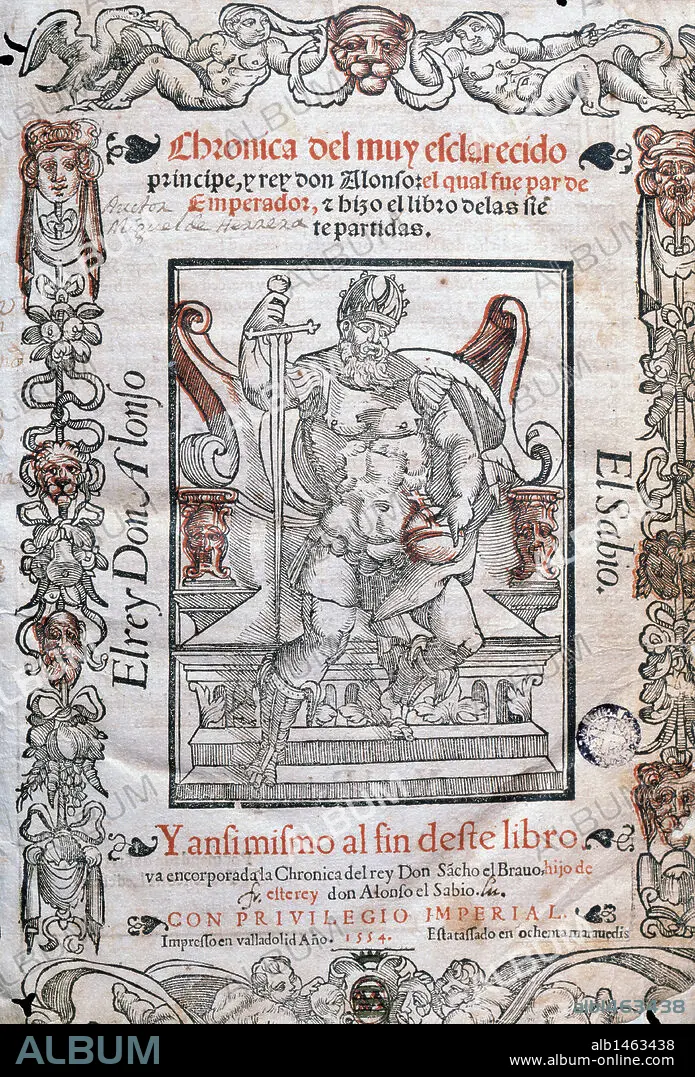 Chronica del muy esclarecido
principe, y rey don Alonso: el qual fue par de
Emperador, & hizo el libro delas sie
te partidas.
Auctor
Miguel de Herrera
El rey Don Alonso
El Sabio.
Y ansi mismo al fin deste libro
va encorporada la Chronica del rey Don Sãcho el Brauo, hijo de
este rey don Alonso el Sabio.
CON PRIVILEGIO IMPERIAL.
Impresso en valladolid Año. 1554. Esta tassado en ochenta marauedis
ALBUM
alb1463438
www.album-online.com